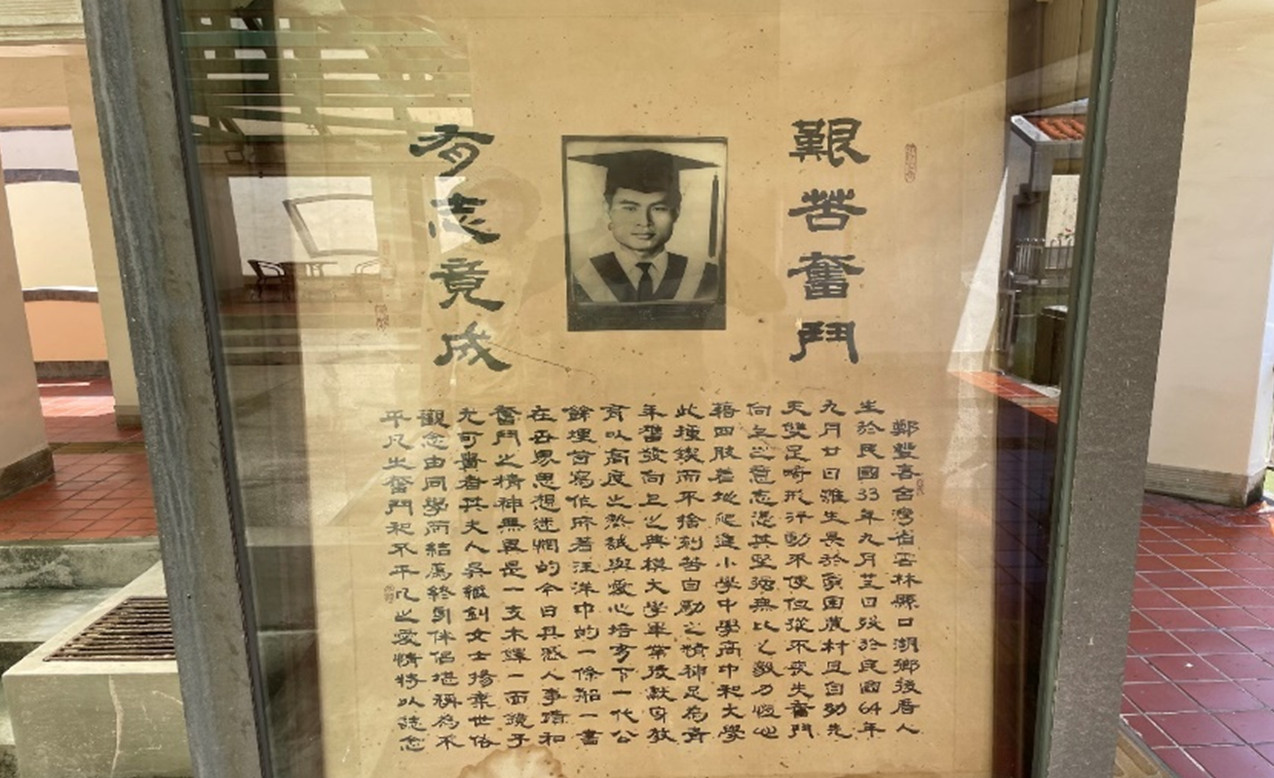 艱苦奮鬥
有志竟成
鄭豐喜台灣省雲林縣口湖鄉後厝人
生於民國33年九月廿日歿於民國64年
九月廿日誕生果於家困農村且自幼先
天雙足畸形行動不便但從不喪失奮鬥
向上之意志憑其堅強無比之毅力恆心
藉四肢著地爬進小學中學高中和大學
此種鍥而不捨刻苦自勵之精神足為青
年奮發向上之典模大學畢業後獻身教
育以高度之熱誠與愛心培育下一代公
餘埋首寫作所著汪洋中的一條船一書
在吾界思想迷惘的今日具感人事蹟和
奮鬥之精神無異是一支木鐸一面鏡子
尤可書者其夫人吳繼釗女士揚棄世俗
觀念由同學而結為終身伴侶堪稱為不
平凡之奮鬥和不平凡之愛情特以誌念